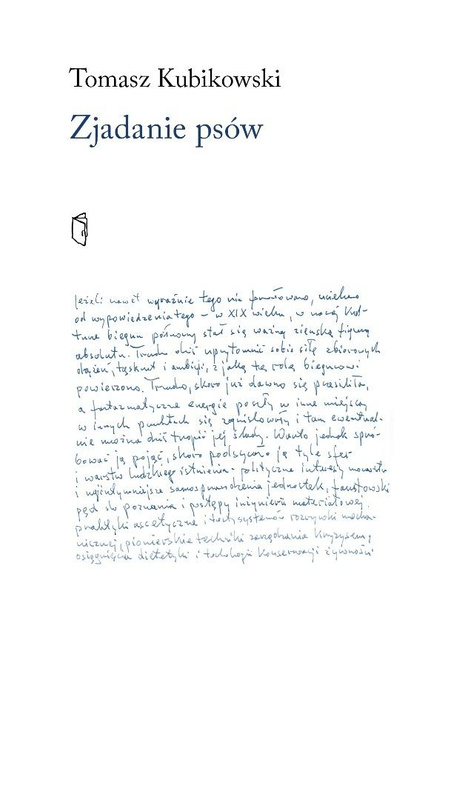 Tomasz Kubikowski
Zjadanie psów
Jeżeli nawet wyraźnie tego nie
od wypowiedzenia tego – w XIX wieku, w naszej kul-
turze biegun północny stał się ważną ziemską figurą
absolutu. Trudno dziś uprzytomnić sobie siłę zbiorowych
dążeń, tęsknot i ambicji, z jaką tę rolę biegunowi
powierzono. Trudno, skoro już dawno się przesiliła,
a fantazmatyczne energie poszły w inne miejsca,
w innych punktach się i tam ewentual-
nie można dziś tropić jej ślady. Warto jednak spró-
bować ją pojąć, skoro podsycało ją tyle sfer
i warstw ludzkiego istnienia: polityczne interesy mocarstw
i najintymniejsze samosprawdzenia jednostek, faustowski
pęd do poznania i postępy inżynierii materiałowej,
praktyki ascetyczne i rozrywki masowa
pionierskie techniki zarządzania kryzysem,
osiągnięcia dietetyki i technologii konserwacji żywności